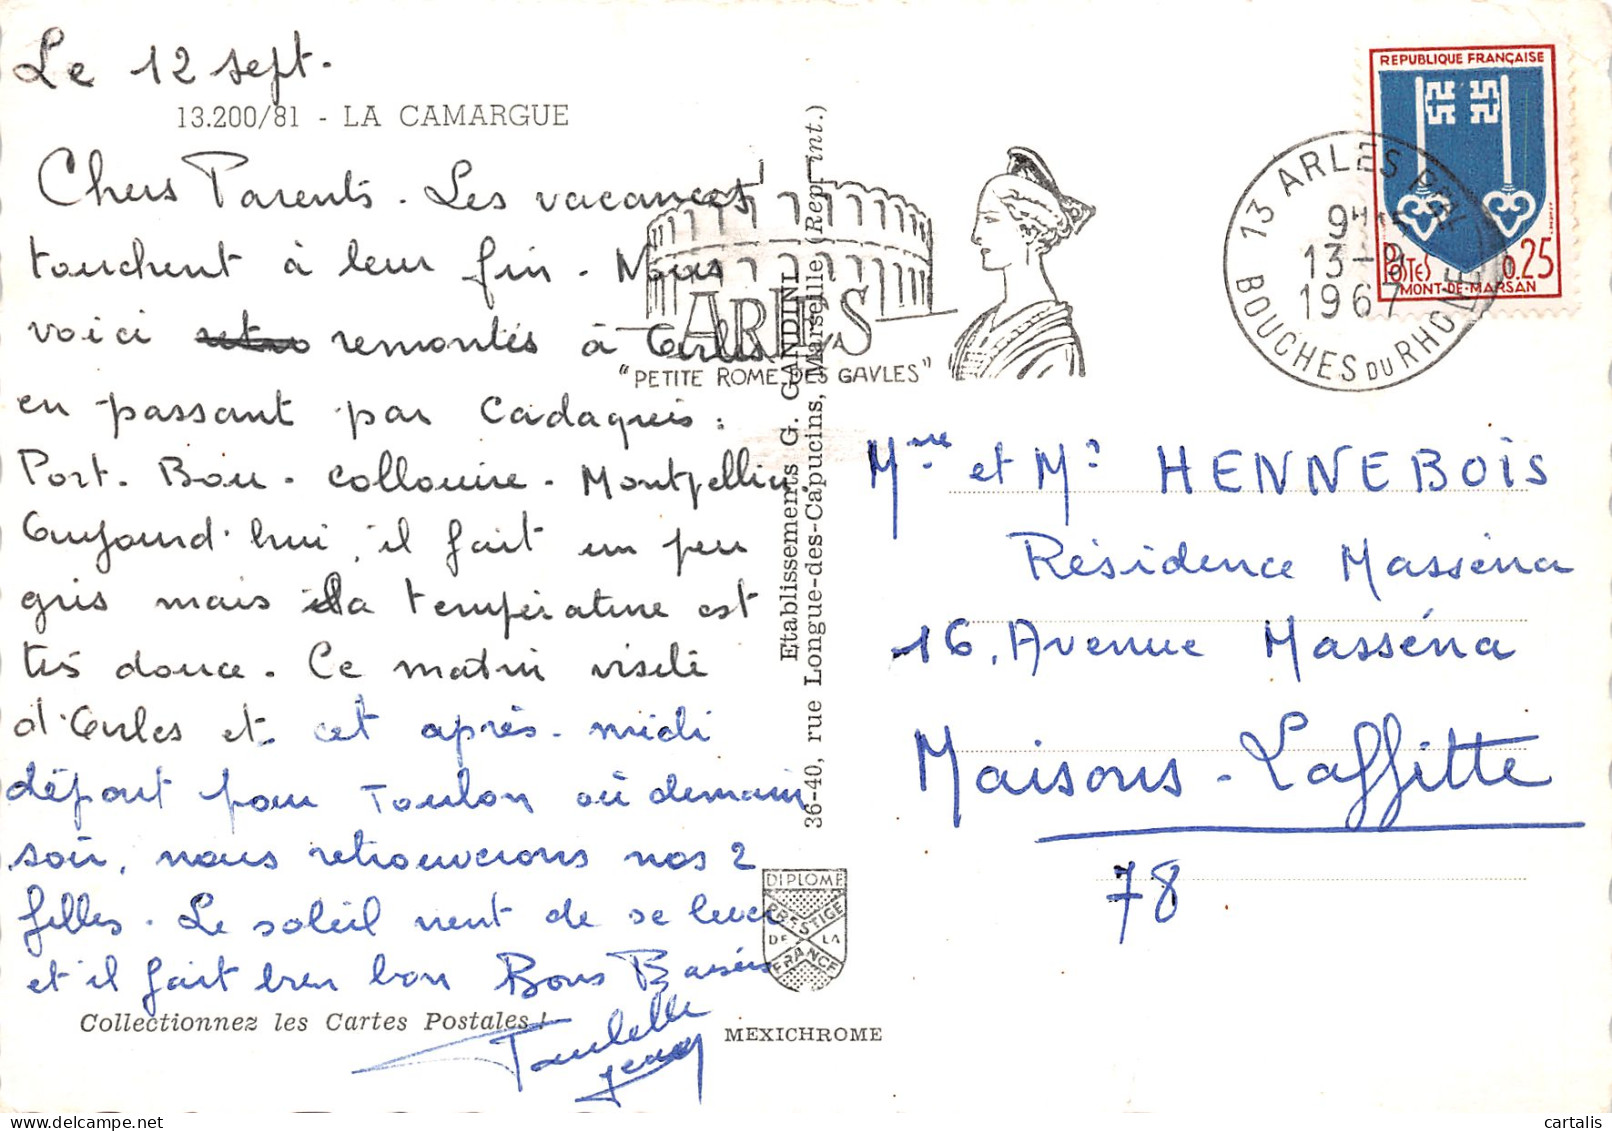 Le 12 sept.
13.200/81 - LA CAMARGUE
Chers Parents. Les vacances
touchent à leur fin. Nous
voici remontés à Arles
en passant par Cadaquès:
Port. Bou. Collouire. Montpellier.
Aujourd'hui, il fait un peu
gris mais la température est
très douce. Ce matin visite
d'Arles et cet après-midi
départ pour Toulon où demain
soir, nous retrouverons nos 2
filles. Le soleil vient de se lever
et il fait bien bon Bons Baisers
Collectionnez les Cartes Postales !
Etablissements G. GANDINI
36-40, rue Longue-des-Capucins, Marseille (Rep. int.)
DIPLOME
PRESTIGE
DE LA
FRANCE
MEXICHROME
ARLES
"PETITE ROME DES GAULES"
13 ARLES
9H15
13-9
1967
BOUCHES DU RHONE
REPUBLIQUE FRANÇAISE
POSTES 0.25
MONT-DE-MARSAN
Mme et Mr HENNEBOIS
Résidence Masséna
16, Avenue Masséna
Maisons-Laffitte
78
cartalis